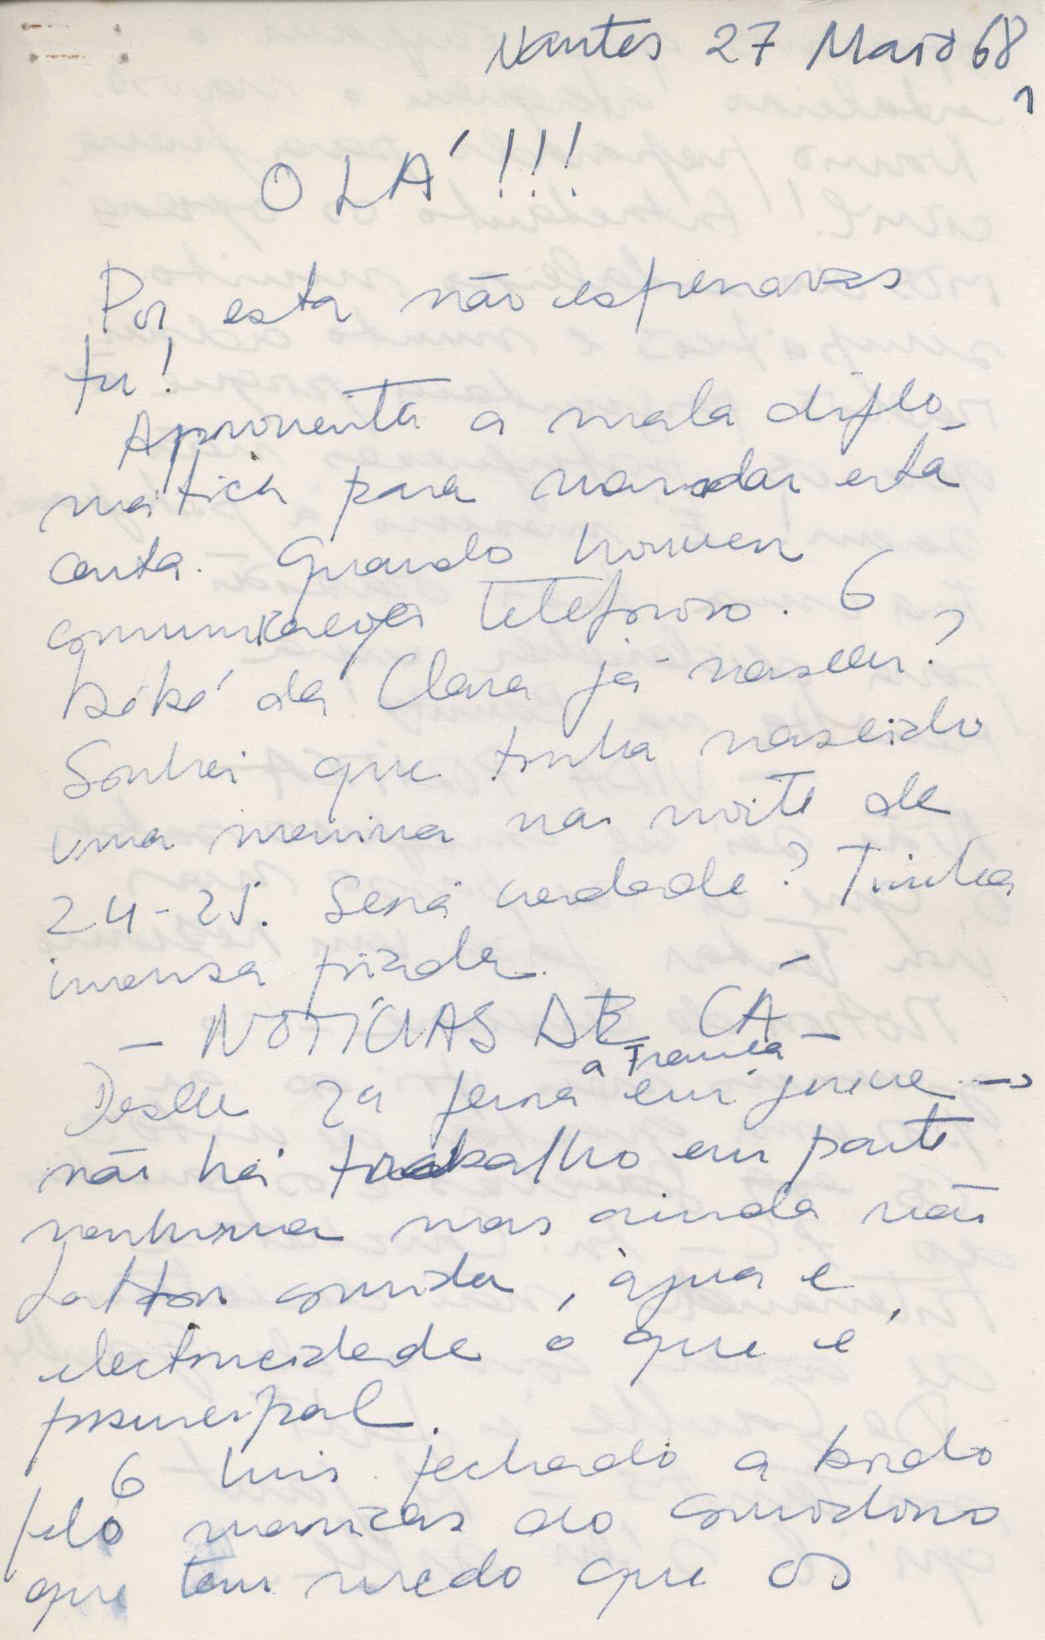 Nantes 27 Maio 68
1
OLÁ!!!
Por esta não esperavas
tu!
Aproveita a mala diplo-
mática para mandar esta
carta. Quando houver
comunicações telefono. O
bébé da Clara já nasceu?
Sonhei que tinha nascido
uma menina na noite de
24-25. Será verdade? Tinha
imensa piada.
- NOTÍCIAS DE CÁ -
a França
Desde 2a feira em greve →
não há trabalho em parte
nenhuma mas ainda não
faltou comida, água e
electricidade o que é
principal.
O Luis fechado a bordo
pelo do comodoro
que tem medo que os